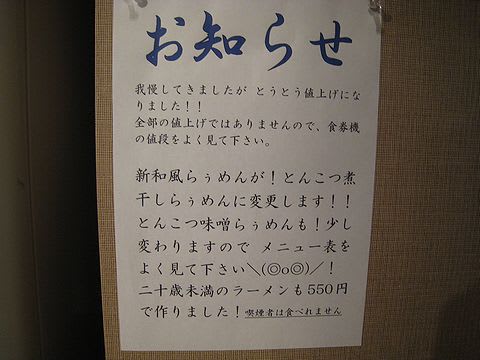 お知らせ
我慢してきましたが とうとう値上げにな
りました！！
全部の値上げではありませんので、食券機
の値段をよく見て下さい。
新和風らぅめんが！とんこつ煮
干しらぅめんに変更します！！
とんこつ味噌らぅめんも！少し
変わりますので メニュー表を
よく見て下さい＼(◎o◎)／！
二十歳未満のラーメンも550円
で作りました！喫煙者は食べれません